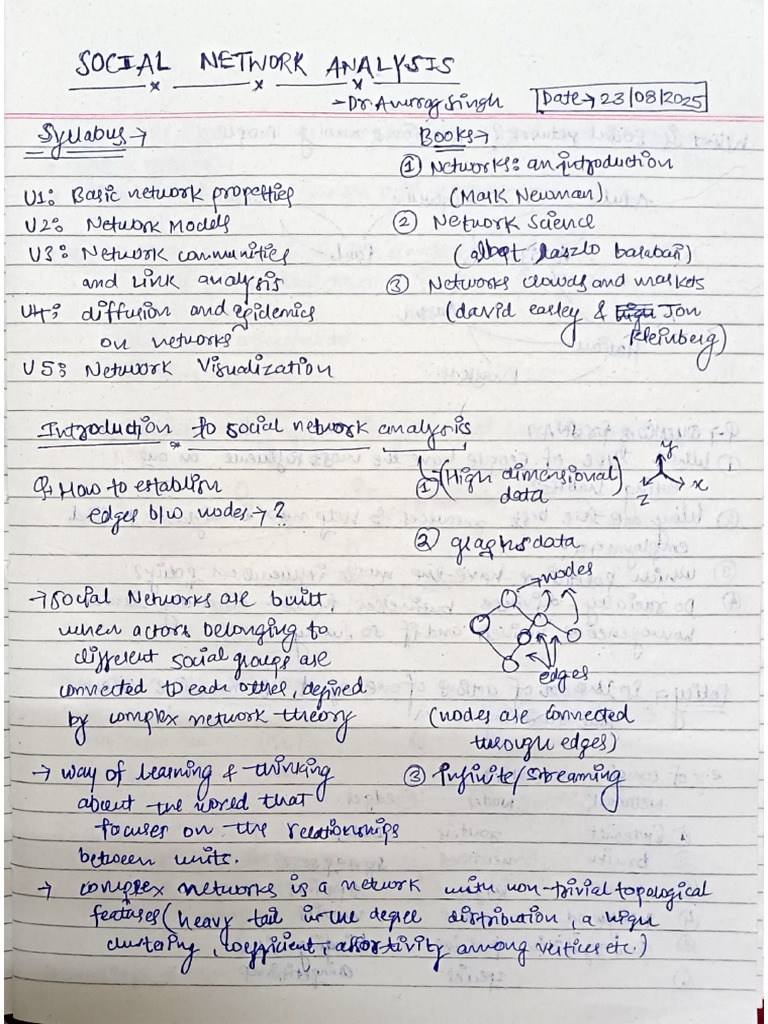 SOCIAL NETWORK ANALYSIS
- Dr. Anurag Singh
Date → 23/08/2025
Syllabus →
U1: Basic network properties
U2: Network Models
U3: Network communities
and link analysis
U4: diffusion and epidemics
on networks
U5: Network Visualization
Books →
① Networks: an introduction
(Mark Newman)
② Network Science
(albert laszlo barabari)
③ Networks clowds and markets
(david easley & Jon
Kleinberg)
Introduction to social network analysis
Q → How to establish
edges b/w nodes → ?
① (High dimensional)
data
y
x
z
② graphs data
nodes
edges
(nodes are connected
through edges)
③ Infinite/Streaming
→ Social Networks are built
when actors belonging to
different social groups are
connected to each other, defined
by complex network theory
→ way of learning & thinking
about the world that
focuses on the relationships
between units.
→ complex networks is a network with non-trivial topological
features (heavy tail in the degree distribution, a high
clustering, coefficient, assortivity among vertices etc.)